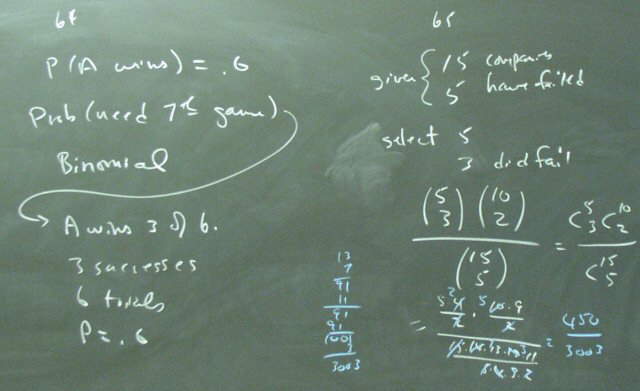 64
P(A wins) = .6
Prob (need 7th game)
Binomial
A wins 3 of 6.
3 successes
6 trials
P = .6
65
given { 15 companies
5 have failed
select 5
3 did fail
(5 3) (10 2) / (15 5) = C 5 3 C 10 2 / C 15 5
= 450 / 3003
13
7
91
11
91
91
1001
3
3003